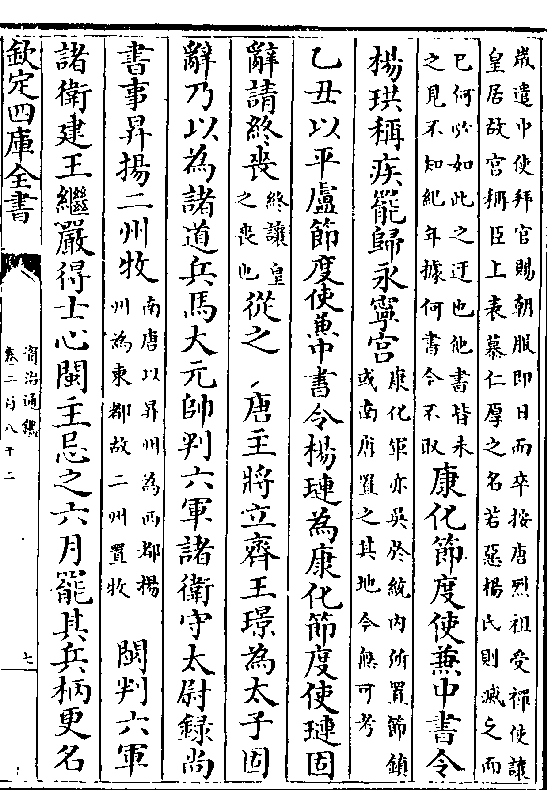 歲遣中使拜官賜朝服即日而卒按唐烈祖受禪使讓
皇居故宫稱臣上表慕仁厚之名若惡楊氏則滅之而
已何必如此之迂也他書皆未
之見不知紀年據何書今不取
康化節度使兼中書令
楊珙稱疾罷歸永寧宫
康化軍亦吳於統内所置節鎮
或南唐置之其地今無可考
乙丑以平盧節度使兼中書令楊璉為康化節度使璉固
辭請終喪
終讓皇
之喪也
從之
唐主將立齊王璟為太子固
辭乃以為諸道兵馬大元帥判六軍諸衛守太尉録尚
書事昇揚二州牧
南唐以昇州為西都揚
州為東都故二州置牧
閩判六軍
諸衛建王繼嚴得士心閩主忌之六月罷其兵柄更名
欽定四庫全書
資治通鑑
卷二百八十二
七